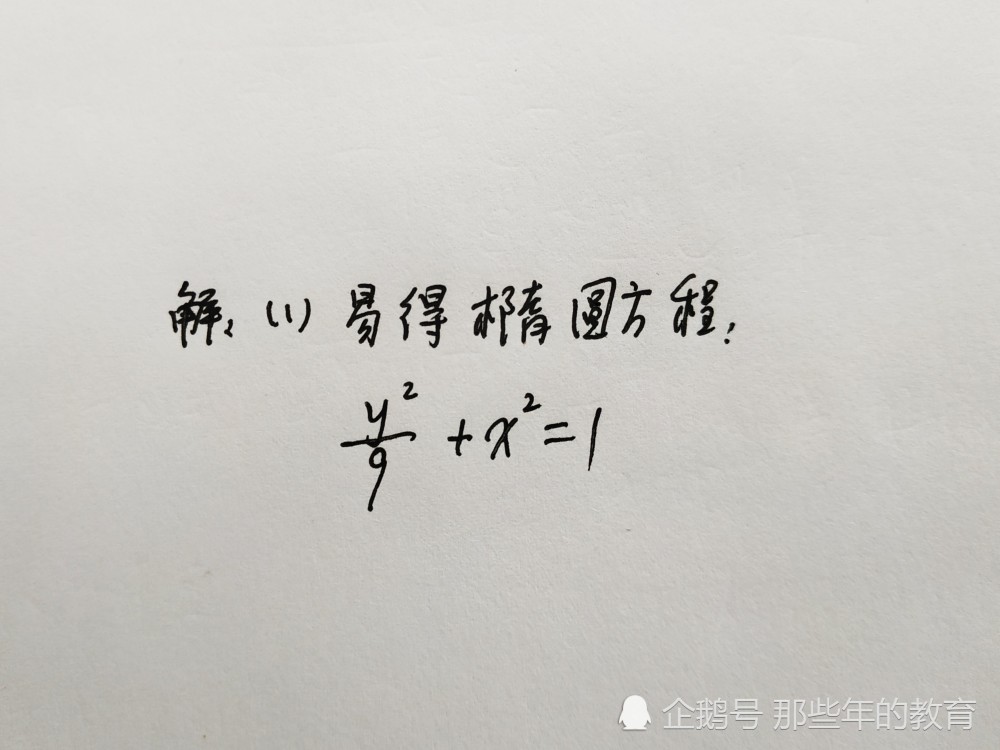 解: (1) 易得椭圆方程:
y²/9 + x² = 1
企鹅号 那些年的教育